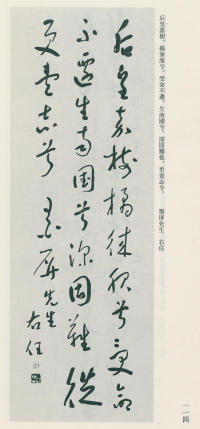 后皇嘉樹，橘徠服兮。受命不遷，生南國兮。深固難徙，更壹志兮。　墨屏先生　右任
后皇嘉樹橘徠服兮受命
不遷生南国兮深固難徙
更壹志兮　墨屏先生
右任
一一四